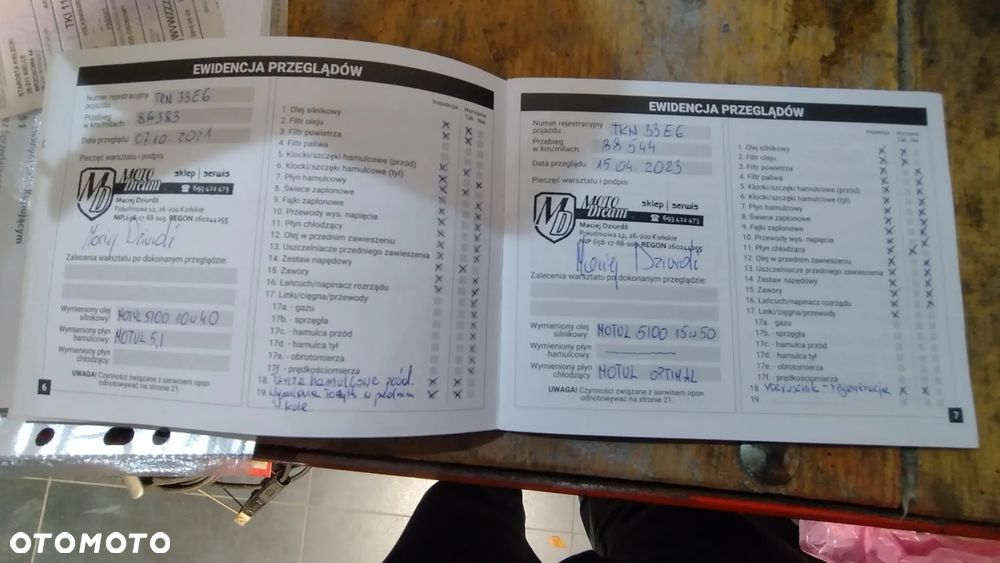 EWIDENCJA PRZEGLĄDÓW
Numer rejestracyjny pojazdu: TKN 33E6
Przebieg w km/milach: 86383
Data przeglądu: 07.10.2021
Pieczęć warsztatu i podpis:
MD MOTO Dream sklep | serwis
☎ 693 422 473
Maciej Dziurdź
Południowa 12, 26-200 Końskie
NIP 658-17-88-109 REGON 260244255
Zalecenia warsztatu po dokonanym przeglądzie:
Wymieniony olej silnikowy: MOTUL 5100 10W40
Wymieniony płyn hamulcowy: MOTUL 5,1
Wymieniony płyn chłodzący:
UWAGA! Czynności związane z serwisem opon odnotowywać na stronie 21.
6
Inspekcja Wymiana Tak Nie
1. Olej silnikowy
2. Filtr oleju
3. Filtr powietrza
4. Filtr paliwa
5. Klocki/szczęki hamulcowe (przód)
6. Klocki/szczęki hamulcowe (tył)
7. Płyn hamulcowy
8. Świece zapłonowe
9. Fajki zapłonowe
10. Przewody wys. napięcia
11. Płyn chłodzący
12. Olej w przednim zawieszeniu
13. Uszczelniacze przedniego zawieszenia
14. Zestaw napędowy
15. Zawory
16. Łańcuch/napinacz rozrządu
17. Linki/cięgna/przewody
17a. - gazu
17b. - sprzęgła
17c. - hamulca przód
17d. - hamulca tył
17e. - obrotomierza
17f. - prędkościomierza
18. tarcze hamulcowe przód.
19. Wymiana łożysk w przednim kole
EWIDENCJA PRZEGLĄDÓW
Numer rejestracyjny pojazdu: TKN 33E6
Przebieg w km/milach: 88544
Data przeglądu: 15.04.2023
Pieczęć warsztatu i podpis:
MD MOTO Dream sklep | serwis
☎ 693 422 473
Maciej Dziurdź
Południowa 12, 26-200 Końskie
NIP 658-17-88-109 REGON 260244255
Maciej Dziurdź
Zalecenia warsztatu po dokonanym przeglądzie:
Wymieniony olej silnikowy: MOTUL 5100 15W50
Wymieniony płyn hamulcowy:
Wymieniony płyn chłodzący: MOTUL OPTIMAL
UWAGA! Czynności związane z serwisem opon odnotowywać na stronie 21.
Inspekcja Wymiana Tak Nie
1. Olej silnikowy
2. Filtr oleju
3. Filtr powietrza
4. Filtr paliwa
5. Klocki/szczęki hamulcowe (przód)
6. Klocki/szczęki hamulcowe (tył)
7. Płyn hamulcowy
8. Świece zapłonowe
9. Fajki zapłonowe
10. Przewody wys. napięcia
11. Płyn chłodzący
12. Olej w przednim zawieszeniu
13. Uszczelniacze przedniego zawieszenia
14. Zestaw napędowy
15. Zawory
16. Łańcuch/napinacz rozrządu
17. Linki/cięgna/przewody
17a. - gazu
17b. - sprzęgła
17c. - hamulca przód
17d. - hamulca tył
17e. - obrotomierza
17f. - prędkościomierza
18. rozrusznik - regeneracja
19.
7
OTOMOTO